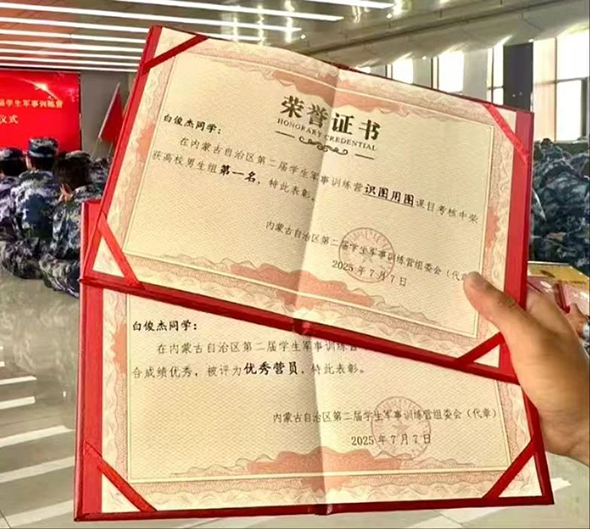 届学生军事训练营
仪式
荣誉证书
HONORARY CREDENTIAL
白俊杰同学：
在内蒙古自治区第二届学生军事训练营识图用图课目考核中荣
获高校男生组第一名，特此表彰。
内蒙古自治区第二届学生军事训练营组委会（代章）
2025年7月7日
白俊杰同学：
在内蒙古自治区第二届学生军事训练营
合成绩优秀，被评为优秀营员，特此表彰。
内蒙古自治区第二届学生军事训练营组委会（代章）
2025年7月7日